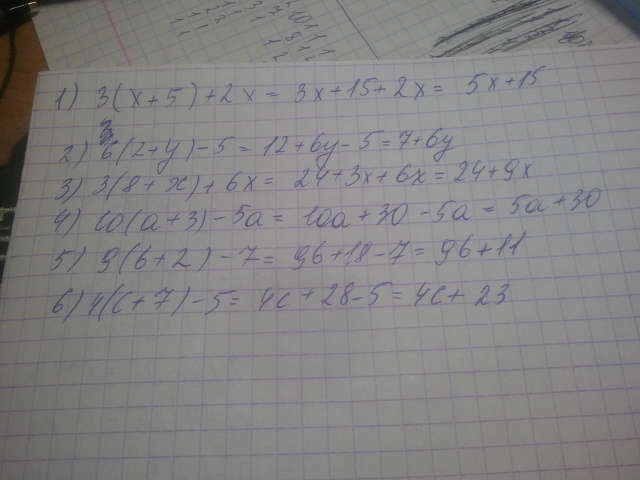 1) 3(x+5)+2x = 3x+15+2x = 5x+15
2) 6(2+y)-5 = 12+6y-5 = 7+6y
3) 3(8+x)+6x = 24+3x+6x = 24+9x
4) 10(a+3)-5a = 10a+30-5a = 5a+30
5) 9(b+2)-7 = 9b+18-7 = 9b+11
6) 4(c+7)-5 = 4c+28-5 = 4c+23